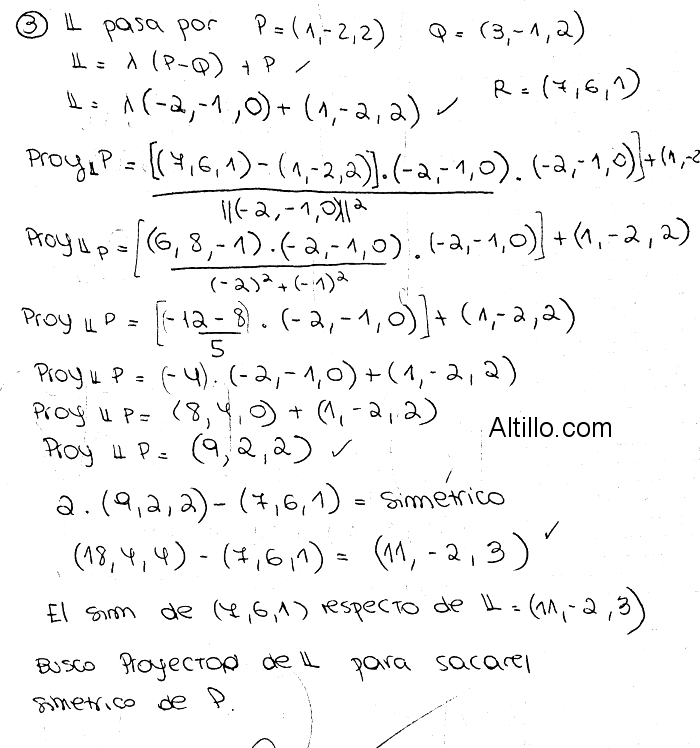 ③ 𝕃 pasa por P = (1,-2,2) Q = (3,-1,2)
𝕃 = λ (P-Q) + P ✓
R = (7,6,1)
𝕃 = λ(-2,-1,0) + (1,-2,2) ✓
Proy𝕃P = [[(7,6,1) - (1,-2,2)].(-2,-1,0) . (-2,-1,0)] + (1,-2
||(-2,-1,0)||²
Proy𝕃P = [(6,8,-1).(-2,-1,0) . (-2,-1,0)] + (1,-2,2)
(-2)² + (-1)²
Proy 𝕃 P = [(-12-8) . (-2,-1,0)] + (1,-2,2)
5
Proy 𝕃 P = (-4). (-2,-1,0) + (1,-2,2)
Proy 𝕃 P = (8,4,0) + (1,-2,2)
Altillo.com
Proy 𝕃 P = (9,2,2) ✓
2. (9,2,2) - (7,6,1) = simétrico
(18,4,4) - (7,6,1) = (11,-2,3) ✓
El sim de (7,6,1) respecto de 𝕃 = (11,-2,3)
Busco Proyector de 𝕃 para sacar el
simetrico de P.